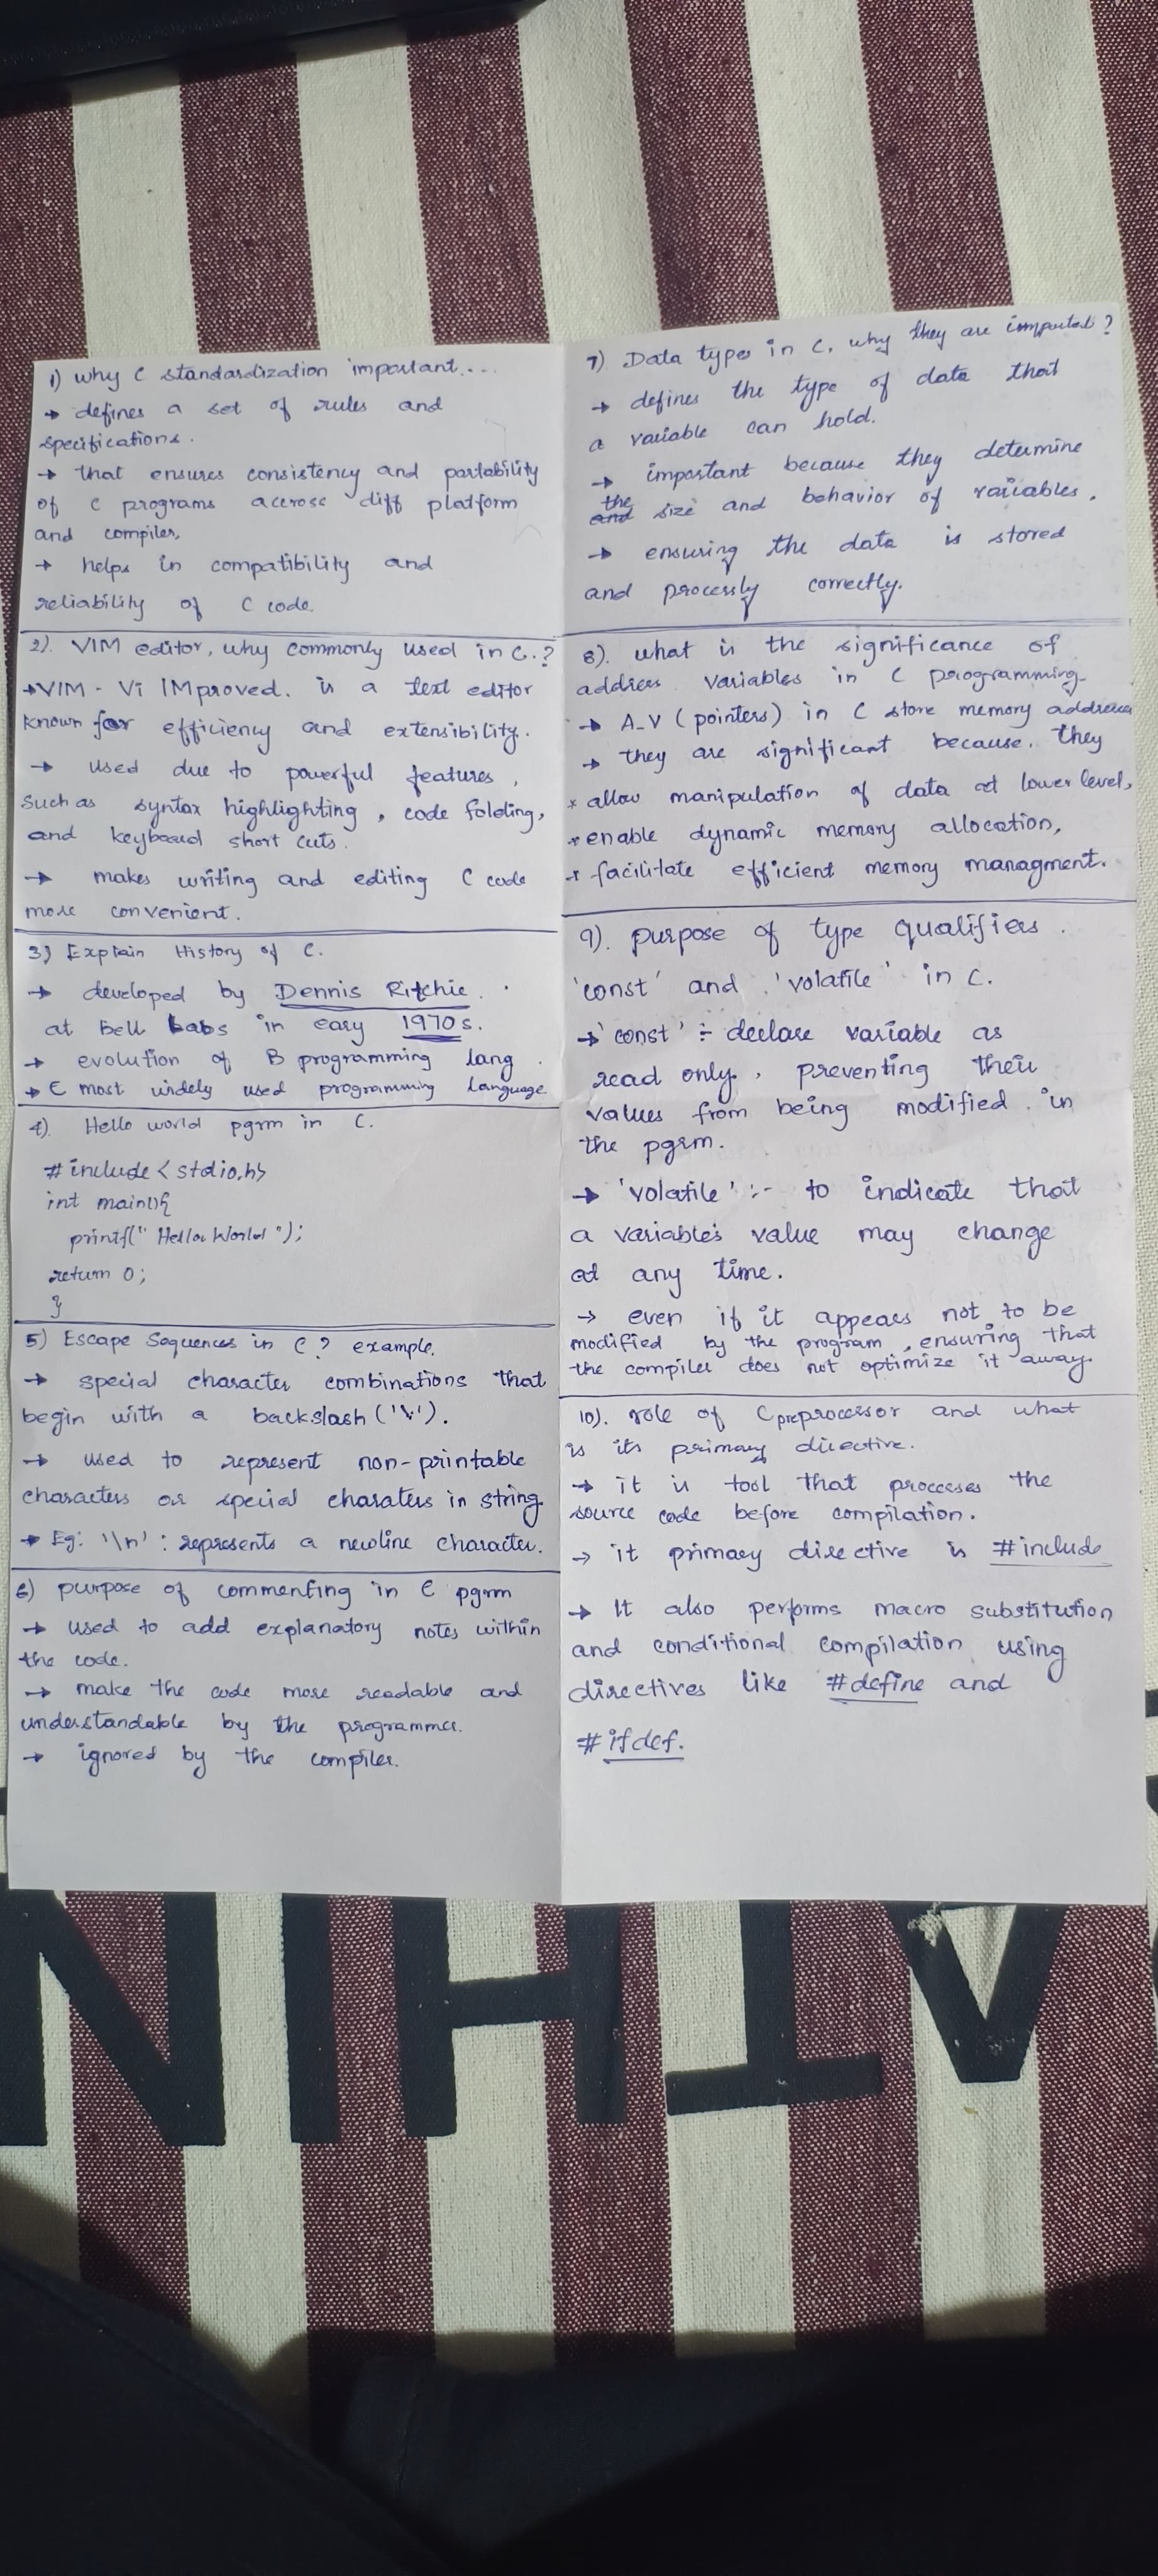 1) why C standardization important...
→ defines a set of rules and
specifications.
→ that ensures consistency and partability
of C programs accross diff platform
and compiler,
→ helps in compatibility and
reliability of C code.
2). VIM editor, why commonly used in C.?
→ VIM - Vi IMproved. is a text editor
known for efficiency and extensibility.
→ used due to powerful features,
such as syntax highlighting, code folding,
and keyboard short cuts.
→ makes writing and editing C code
more convenient.
3) Explain History of C.
→ developed by Dennis Ritchie.
at Bell Labs in eary 1970s.
→ evolution of B programming lang.
→ C most widely used programming language
4). Hello world pgrm in C.
#include<stdio.h>
int main(){
printf("Hello World");
return 0;
}
5) Escape Sequences in C? example.
→ special character combinations that
begin with a backslash ('\').
→ used to represent non-printable
characters or special charaters in string.
→ Eg: '\n' : represents a newline character.
6) purpose of commenting in C pgrm
→ used to add explanatory notes within
the code.
→ make the code more readable and
understandable by the programmer.
→ ignored by the compiler.
7) Data types in C, why they are important?
→ defines the type of data that
a variable can hold.
→ important because they determine
the size and behavior of variables.
→ ensuring the data is stored
and processly correctly.
8). what is the significance of
address variables in C programming.
→ A_V (pointers) in C store memory addresses
→ they are significant because, they
* allow manipulation of data at lower level,
* enable dynamic memory allocation,
* facilitate efficient memory managment.
9). purpose of type qualifiers.
'const' and 'volatile' in C.
→ 'const' :- declare variable as
read only, preventing their
values from being modified in
the pgrm.
→ 'volatile' :- to indicate that
a variable's value may change
at any time.
→ even if it appears not to be
modified by the program, ensuring that
the compiler does not optimize it away.
10). role of C preprocessor and what
is its primary directive.
→ it is tool that processes the
source code before compilation.
→ it primary directive is #include
→ It also performs macro substitution
and conditional compilation using
directives like #define and
#ifdef.
NIHTA